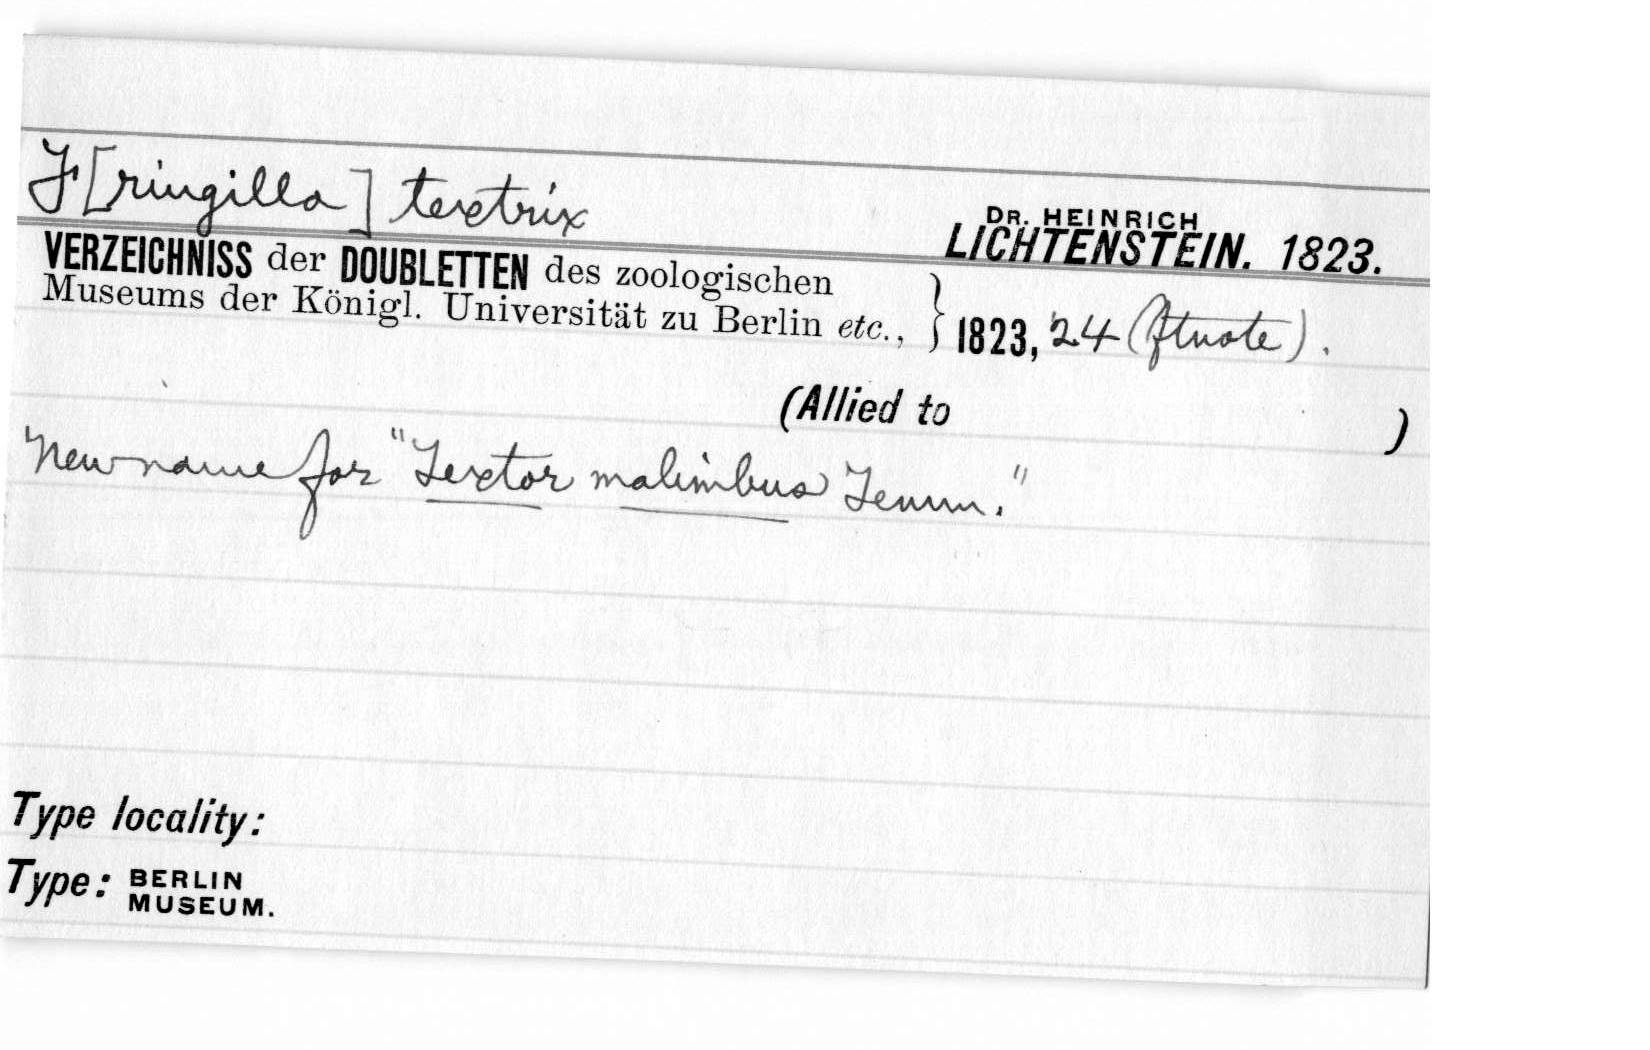 F[ringilla] textrix
DR. HEINRICH
LICHTENSTEIN. 1823.
VERZEICHNISS der DOUBLETTEN des zoologischen
Museums der Königl. Universität zu Berlin etc.,
} 1823, 24 (ftnote).
(Allied to )
New name for "Textor malimbus Temm."
Type locality:
Type: BERLIN
MUSEUM.